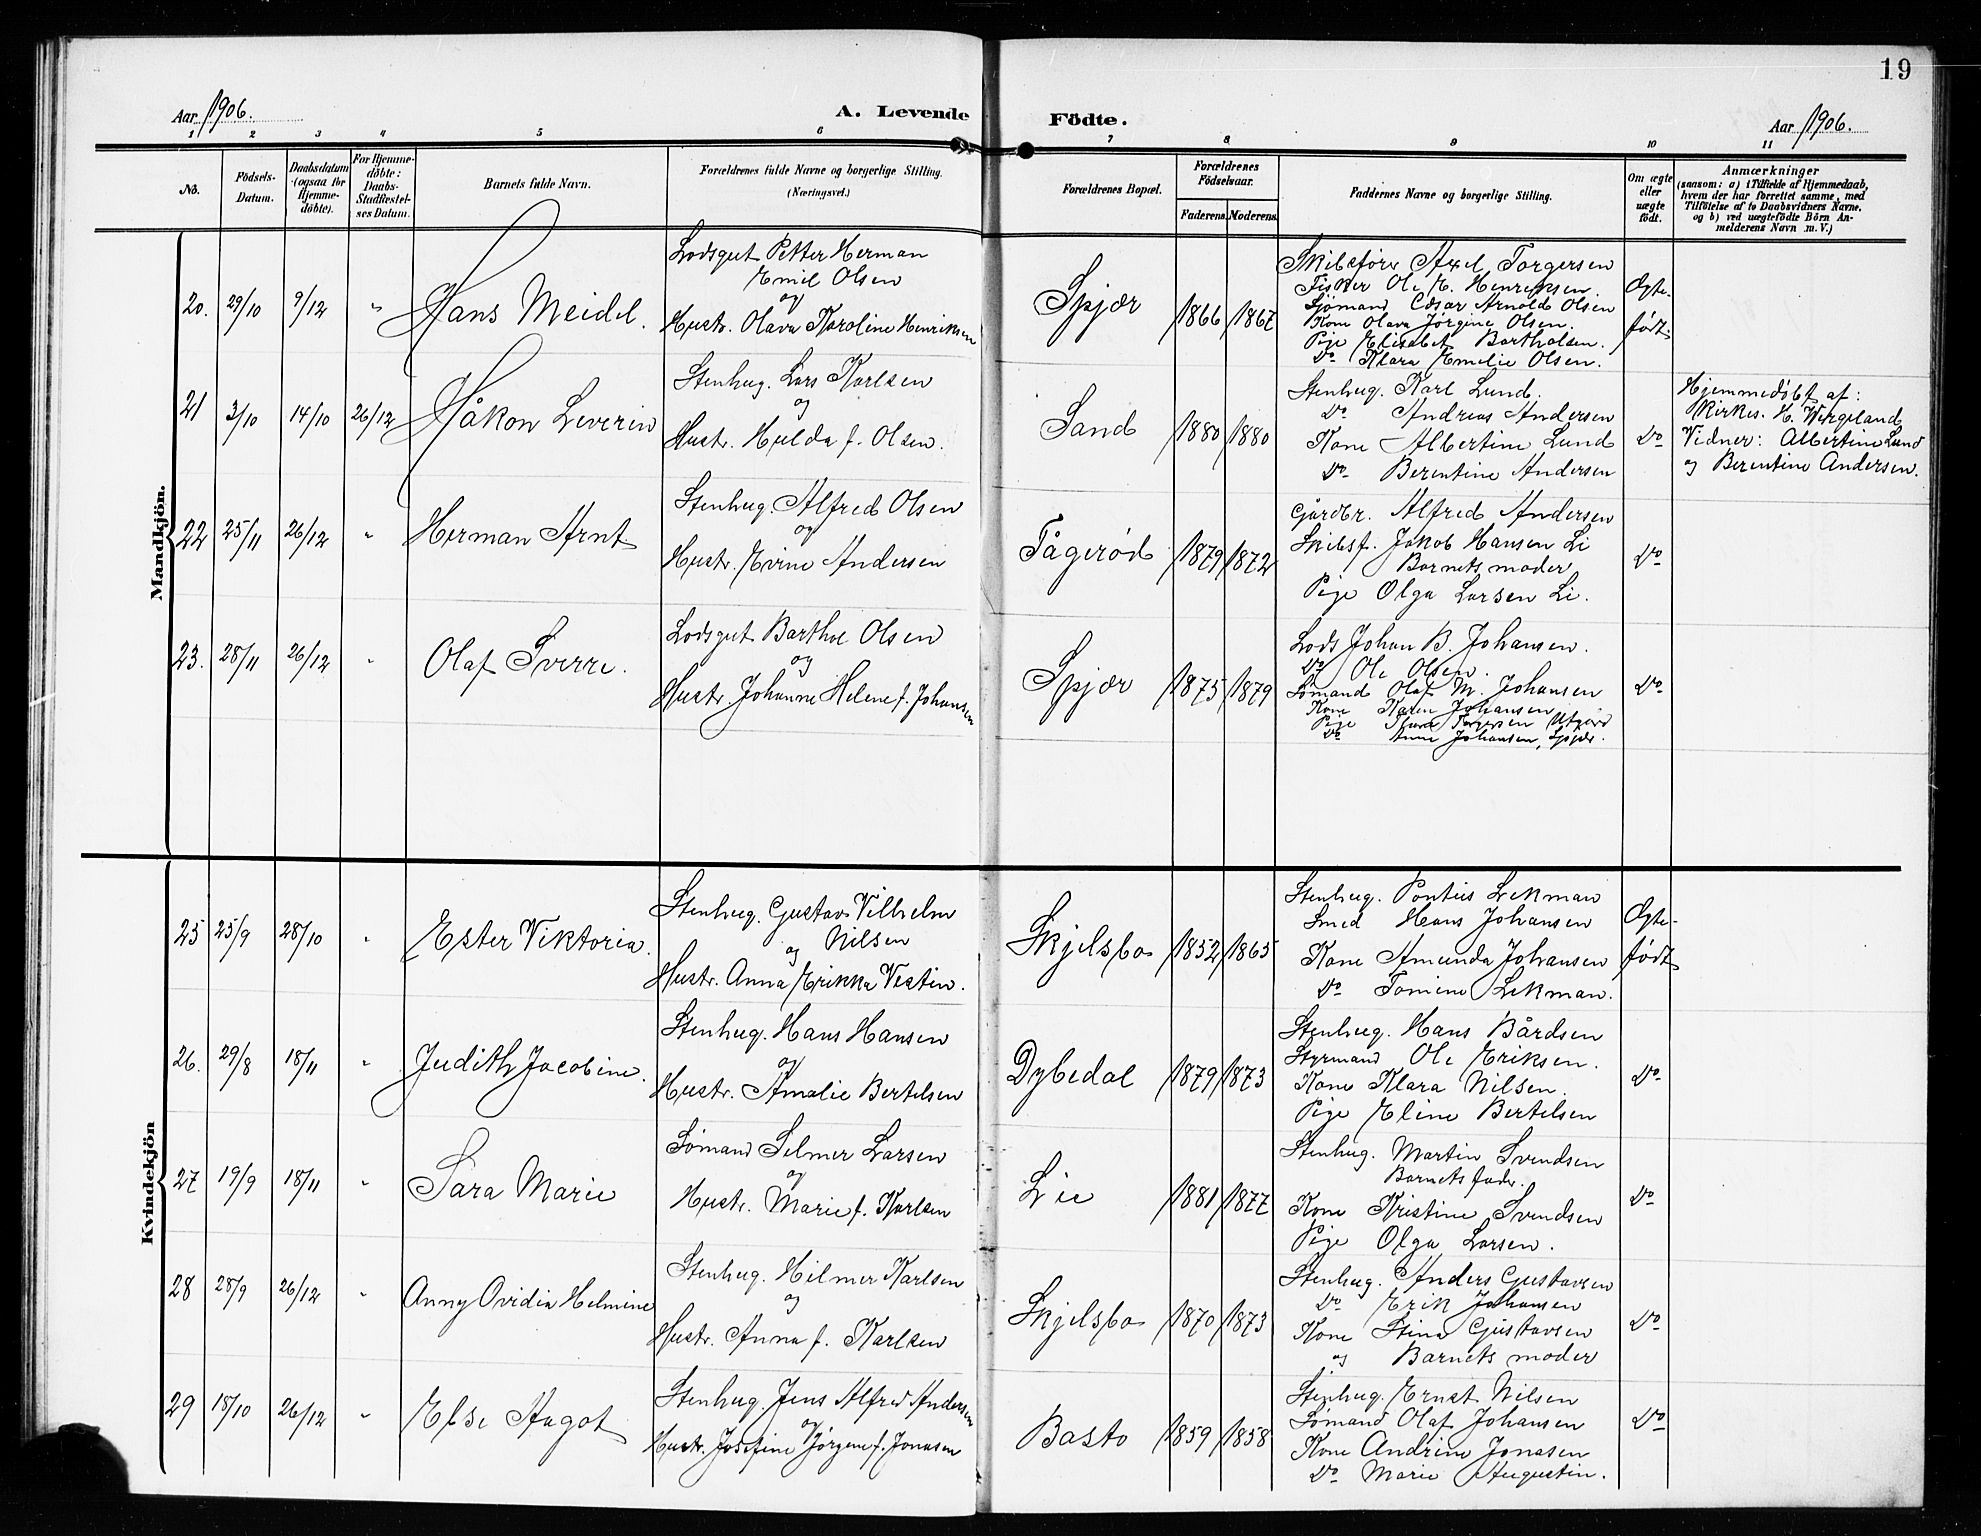 19
Aar 1906.
A. Levende Födte.
Aar 1906.
1 2 3 4 5 6 7 8 9 10 11
No.
Födsels-
Datum.
Daabsdatum
(ogsaa for
Hjemme-
döbte).
For Hjemme-
döbte:
Daabs-
Stadfæstel-
ses Datum.
Barnets fulde Navn.
Forældrenes fulde Navne og borgerlige Stilling.
(Næringsvei.)
Forældrenes Bopæl.
Forældrenes
Födselsaar.
Faderens. Moderens.
Faddernes Navne og borgerlige Stilling.
Om ægte
eller
uægte
födt.
Anmærkninger
(saasom: a) i Tilfælde af Hjemmedaab,
hvem der har forrettet samme, med
Tilföielse af to Daabsvidners Navne,
og b) ved uægtefödte Börn An-
melderens Navn m. V.)
Mandkjön.
20. 29/10 9/12 " Hans Meidel.
Lodsgut Petter Herman
Emil Olsen
og
Hustr. Olava Karoline Henriksen
Spjær 1866 1867
Skibsfører Axel Torgersen
Fisker Ole E. Henriksen.
Sjömand Cæsar Arnold Olsen
Kone Olava Jørgine Olsen.
Pige Elisabet Bartholsen.
Do Klara Emelie Olsen.
Ægte-
født.
21 3/10 14/10 26/12 Håkon Leverin
Stenhug. Lars Karlsen
og
Hustr. Hulda f. Olsen.
Sand 1880 1880
Stenhug. Karl Lund.
Do Andreas Andersen
Kone Albertine Lund
Do Berentine Andersen
Do
Hjemmedøbt af:
Kirkes. H. Wergeland
Vidner: Albertine Lund
og Berentine Andersen.
22 25/11 26/12 " Herman Arnt
Stenhug. Alfred Olsen
og
Hustr. Evine Andersen
Tågerød 1879 1872
Gårdbr. Alfred Andersen
Skibsf. Jakob Hansen Li
Barnets moder
Pige Olga Larsen Li.
Do
23. 28/11 26/12 " Olaf Sverre.
Lodsgut Barthol Olsen
og
Hustr. Johanne Helene f. Johansen
Spjær 1875 1879
Lods Johan B. Johansen.
Do Ole Olsen.
Sømand Olaf M. Johansen
Kone Karen Johansen
Pige Klara Torgersen Utgård
Do Anne Johansen, Spjær.
Do
Kvindekjön
25 25/9 28/10 " Ester Viktoria.
Stenhug. Gustav Vilhelm
og Nilsen
Hustr. Anna Erikka Vestin.
Skjelsbo 1852 1865
Stenhug. Pontus Lekman
Smed Hans Johansen
Kone Amunda Johansen
Do Tomine Lekman.
Ægte-
født
26. 29/8 18/11 " Judith Jacobine.
Stenhug. Hans Hansen
og
Hustr. Amalie Bertelsen
Dybedal 1879 1873
Stenhug. Hans Bårdsen
Styrmand Ole Eriksen.
Kone Klara Nilsen.
Pige Eline Bertelsen
Do
27 19/9 18/11 " Sara Marie
Sømand Selmer Larsen
og
Hustr. Marie f. Karlsen
Lie 1881 1877
Stenhug. Martin Svendsen
Barnets fader.
Kone Kristine Svendsen
Pige Olga Larsen.
Do
28 28/9 26/12 " Anny Ovidia Helmine
Stenhug. Hilmer Karlsen
og
Hustr. Anna f. Karlsen
Skjelsbo 1870 1873
Stenhug. Anders Gustavsen
Do Erik Johansen
Kone Stina Gustavsen
og Barnets moder
Do
29 18/10 26/12 " Else Hagot
Stenhug. Jens Alfred Andersen
og
Hustr. Josefine Jørgene f. Jonasen
Basto 1859 1858
Stenhug. Ernst Nilsen
Sømand Olaf Johansen
Kone Andrine Jonasen
Do Marie Augustin.
Do